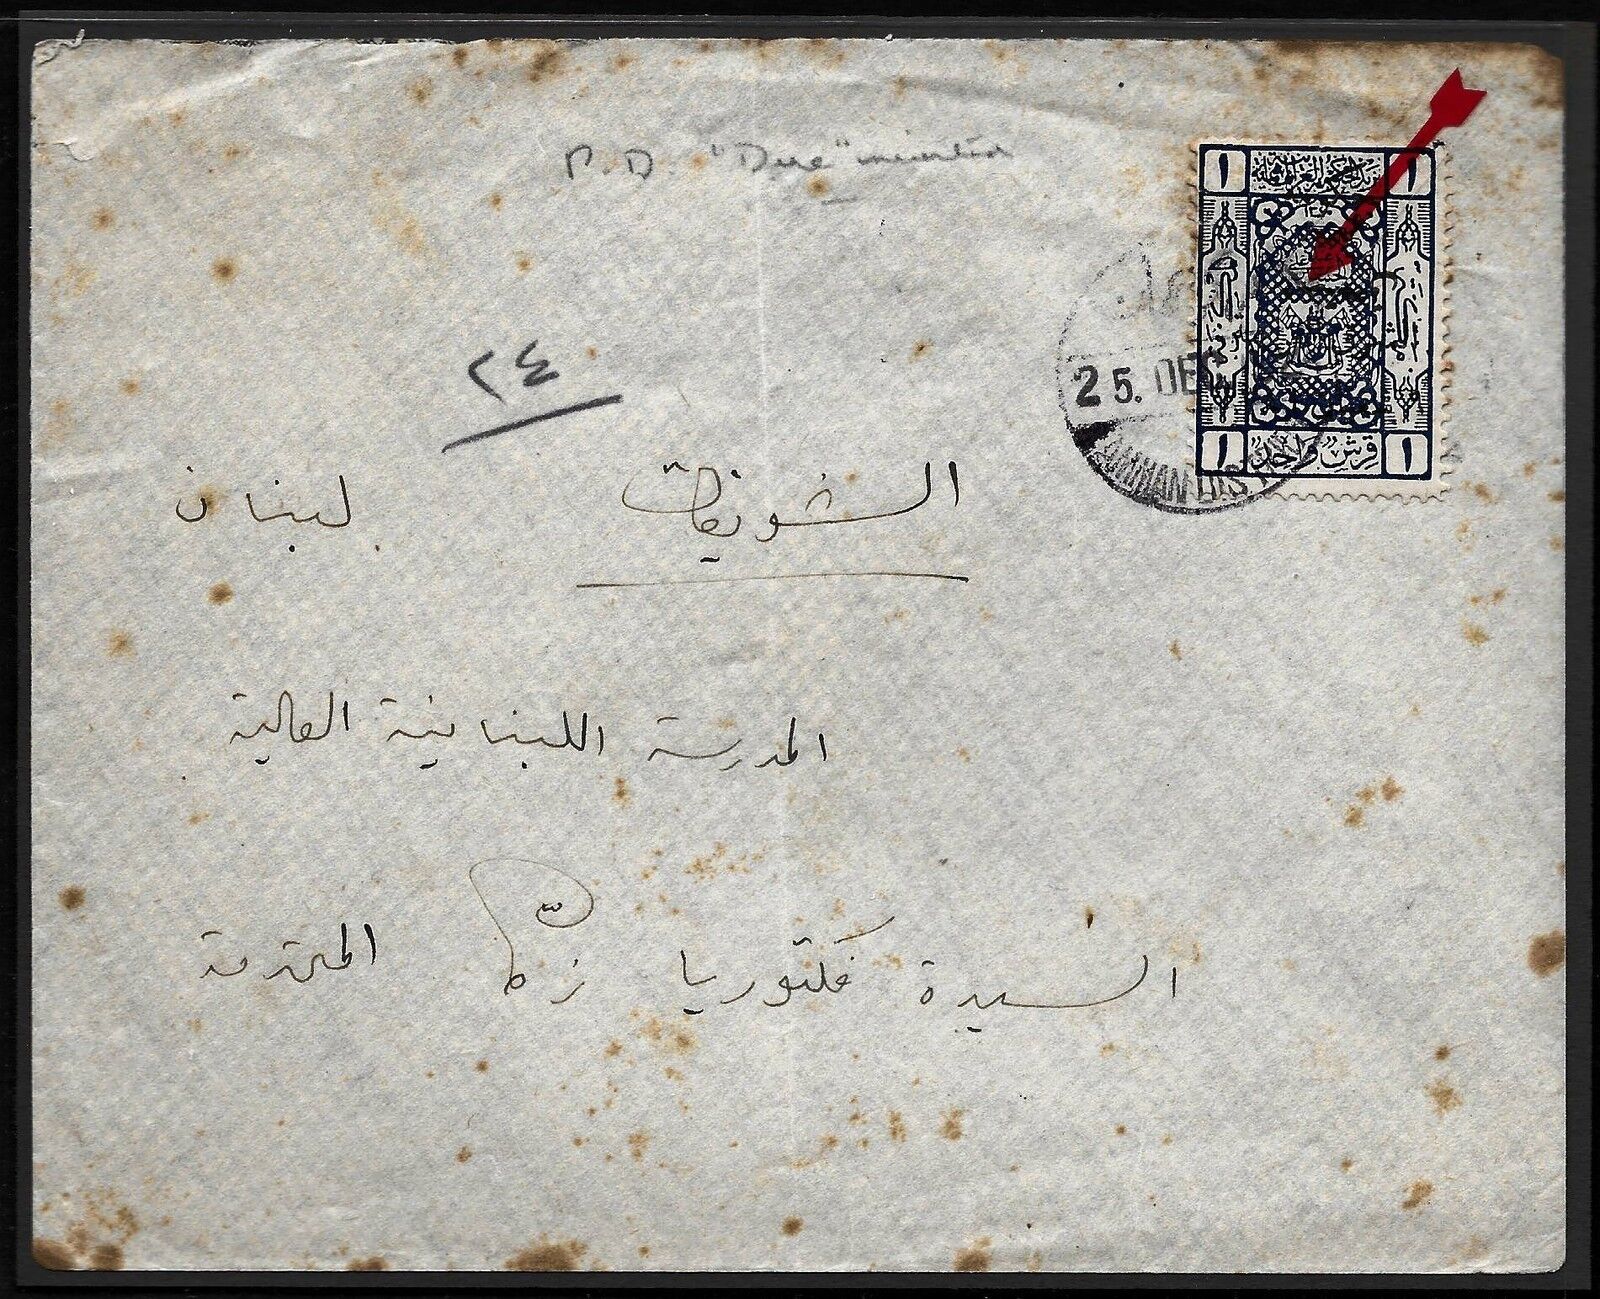 P.D. "Due" mention
١ ١
٢٤
25. DEC
AMMAN DIST
١ قرش واحد ١
الشويفات لبنان
المدرسة اللبنانية العالية
السيدة فكتوريا زكا المحترمة